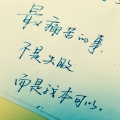 最痛苦的事,
不是失败
而是我本可以。